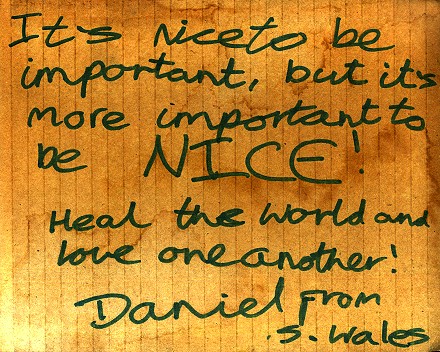 It's nice to be
important, but it's
more important to
be NICE!
Heal the world and
love one another!
Daniel from
S. Wales